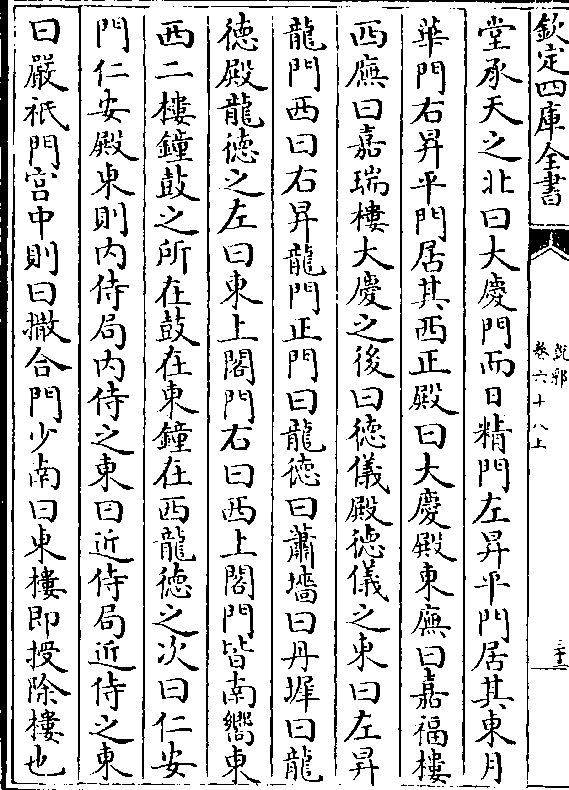 欽定四庫全書
説郛
卷六十八上
三十三
堂承天之北曰大慶門而日精門左昇平門居其東月
華門右昇平門居其西正殿曰大慶殿東廡曰嘉福樓
西廡曰嘉瑞樓大慶之後曰徳儀殿徳儀之東曰左昇
龍門西曰右昇龍門正門曰龍徳曰蕭墻曰丹墀曰龍
徳殿龍徳之左曰東上閤門右曰西上閤門皆南嚮東
西二樓鐘鼓之所在鼓在東鐘在西龍徳之次曰仁安
門仁安殿東則内侍局内侍之東曰近侍局近侍之東
曰嚴祗門宫中則曰撒合門少南曰東樓即授除樓也